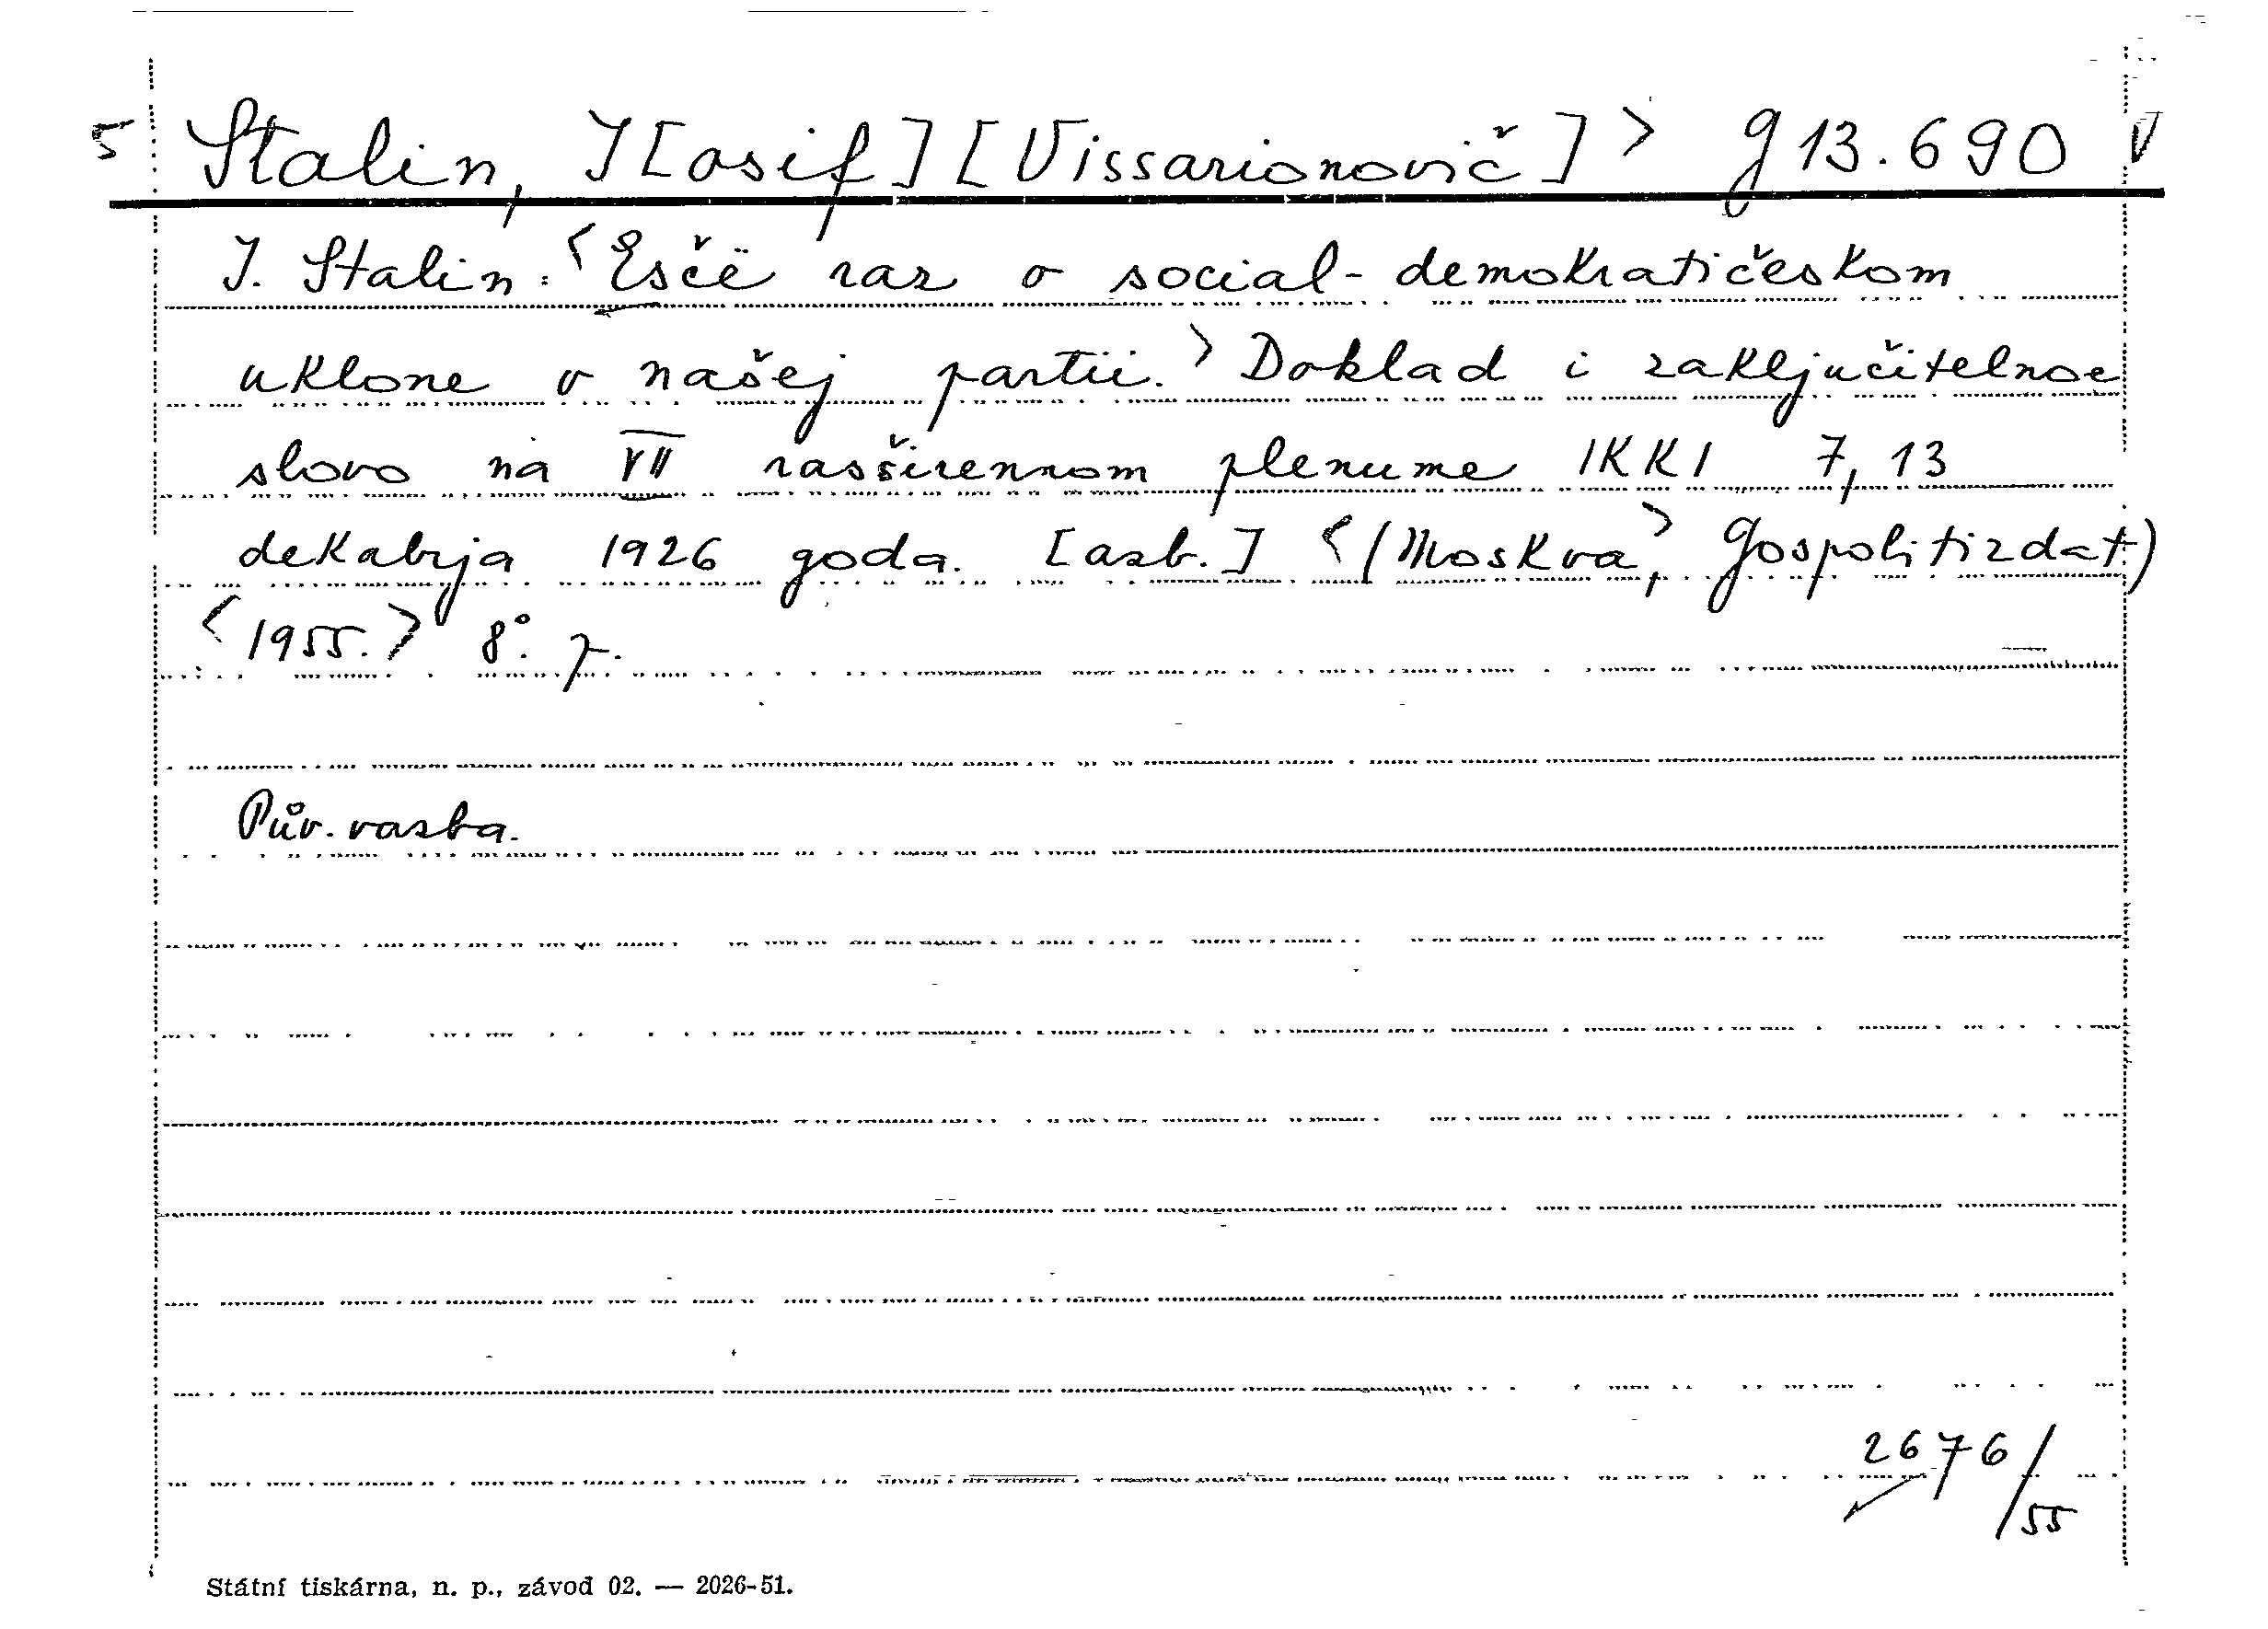 5 Stalin, J[osif] [Vissarionovič] > g 13.690 V
J. Stalin: <Esčë raz o social-demokratičeskom
uklone v našej partii.> Doklad i zaključitelnoe
slovo na VII rasširennom plenume IKKI 7, 13
dekabrja 1926 goda. [azb.] <(Moskva>, Gospolitizdat)
<1955.> 8°. p.
Pův. vazba.
2676/55
Státní tiskárna, n. p., závod 02. — 2026-51.